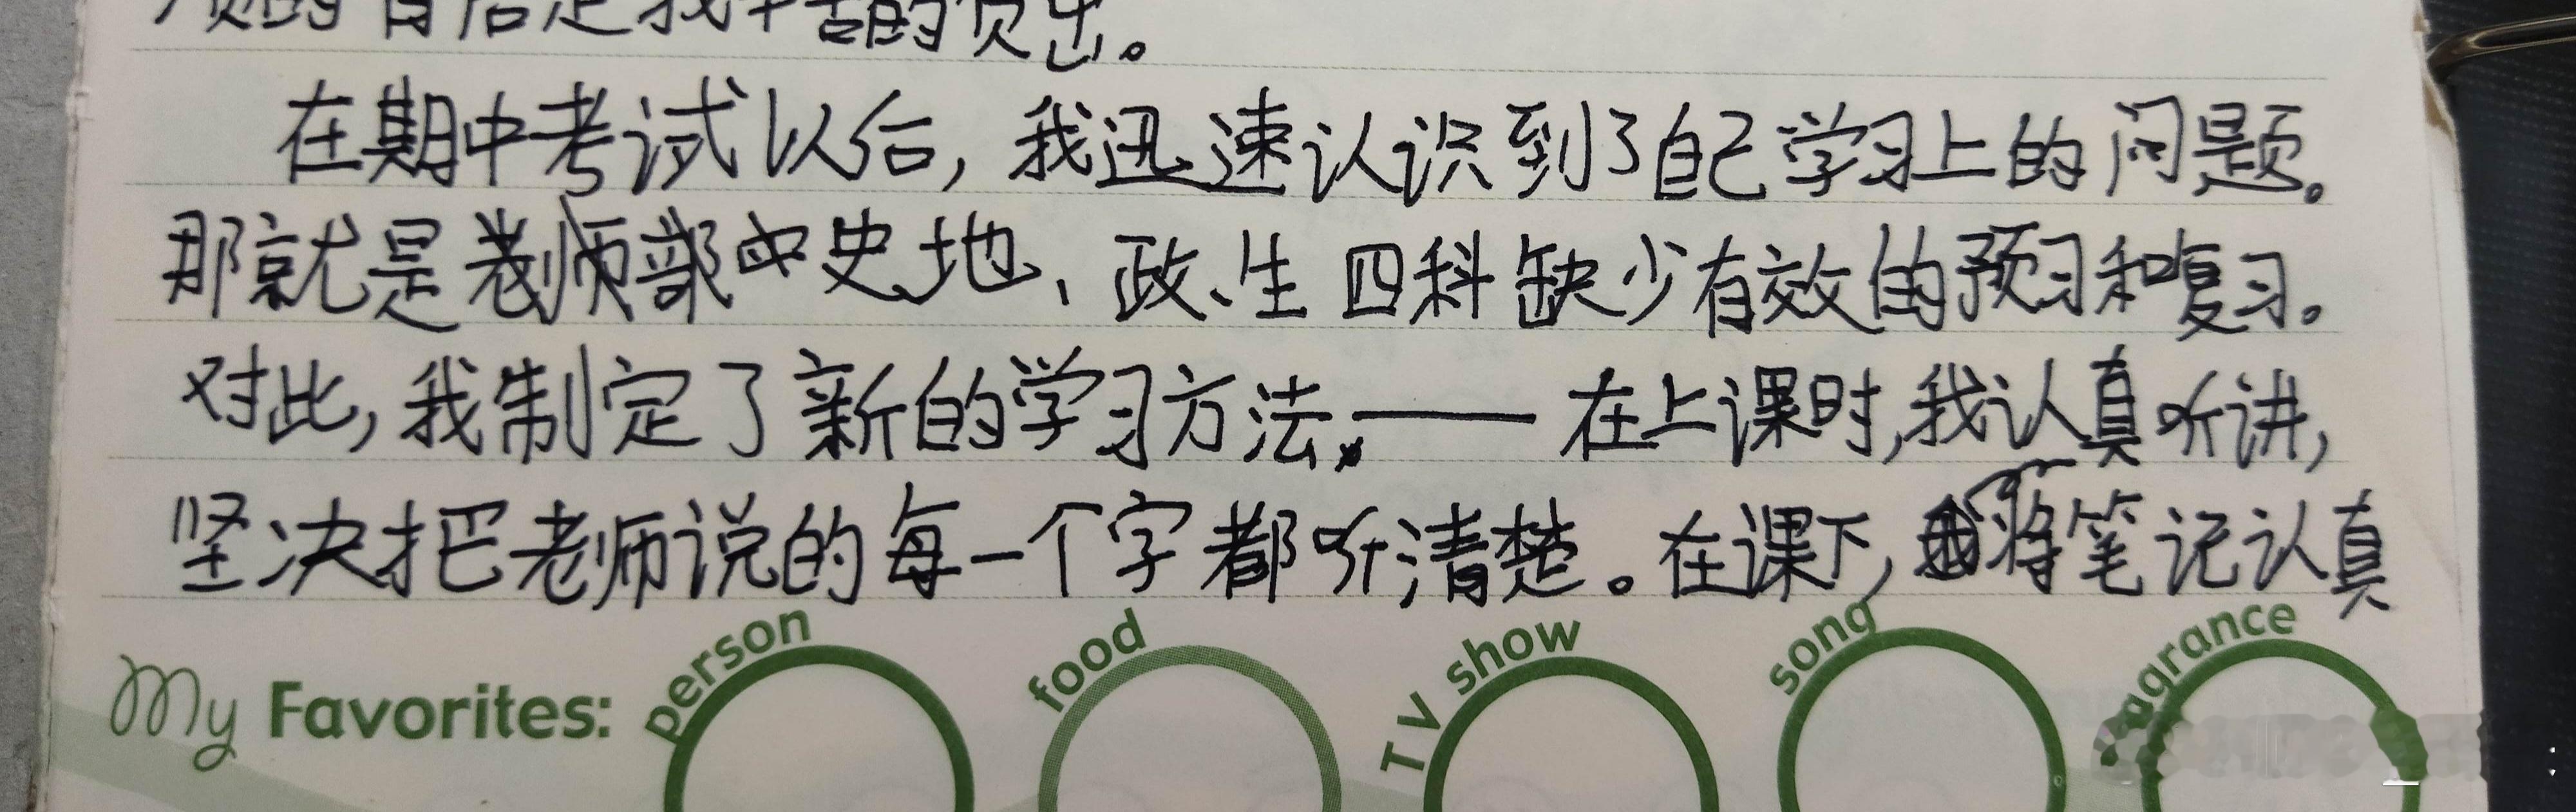 的背后是我辛苦的付出。
在期中考试以后,我迅速认识到了自己学习上的问题。
那就是老师部中史地、政、生四科缺少有效的预习和复习。
对此,我制定了新的学习方法——在上课时,我认真听讲,
坚决把老师说的每一个字都听清楚。在课下,我将笔记认真
My Favorites: person food TV show song agrance